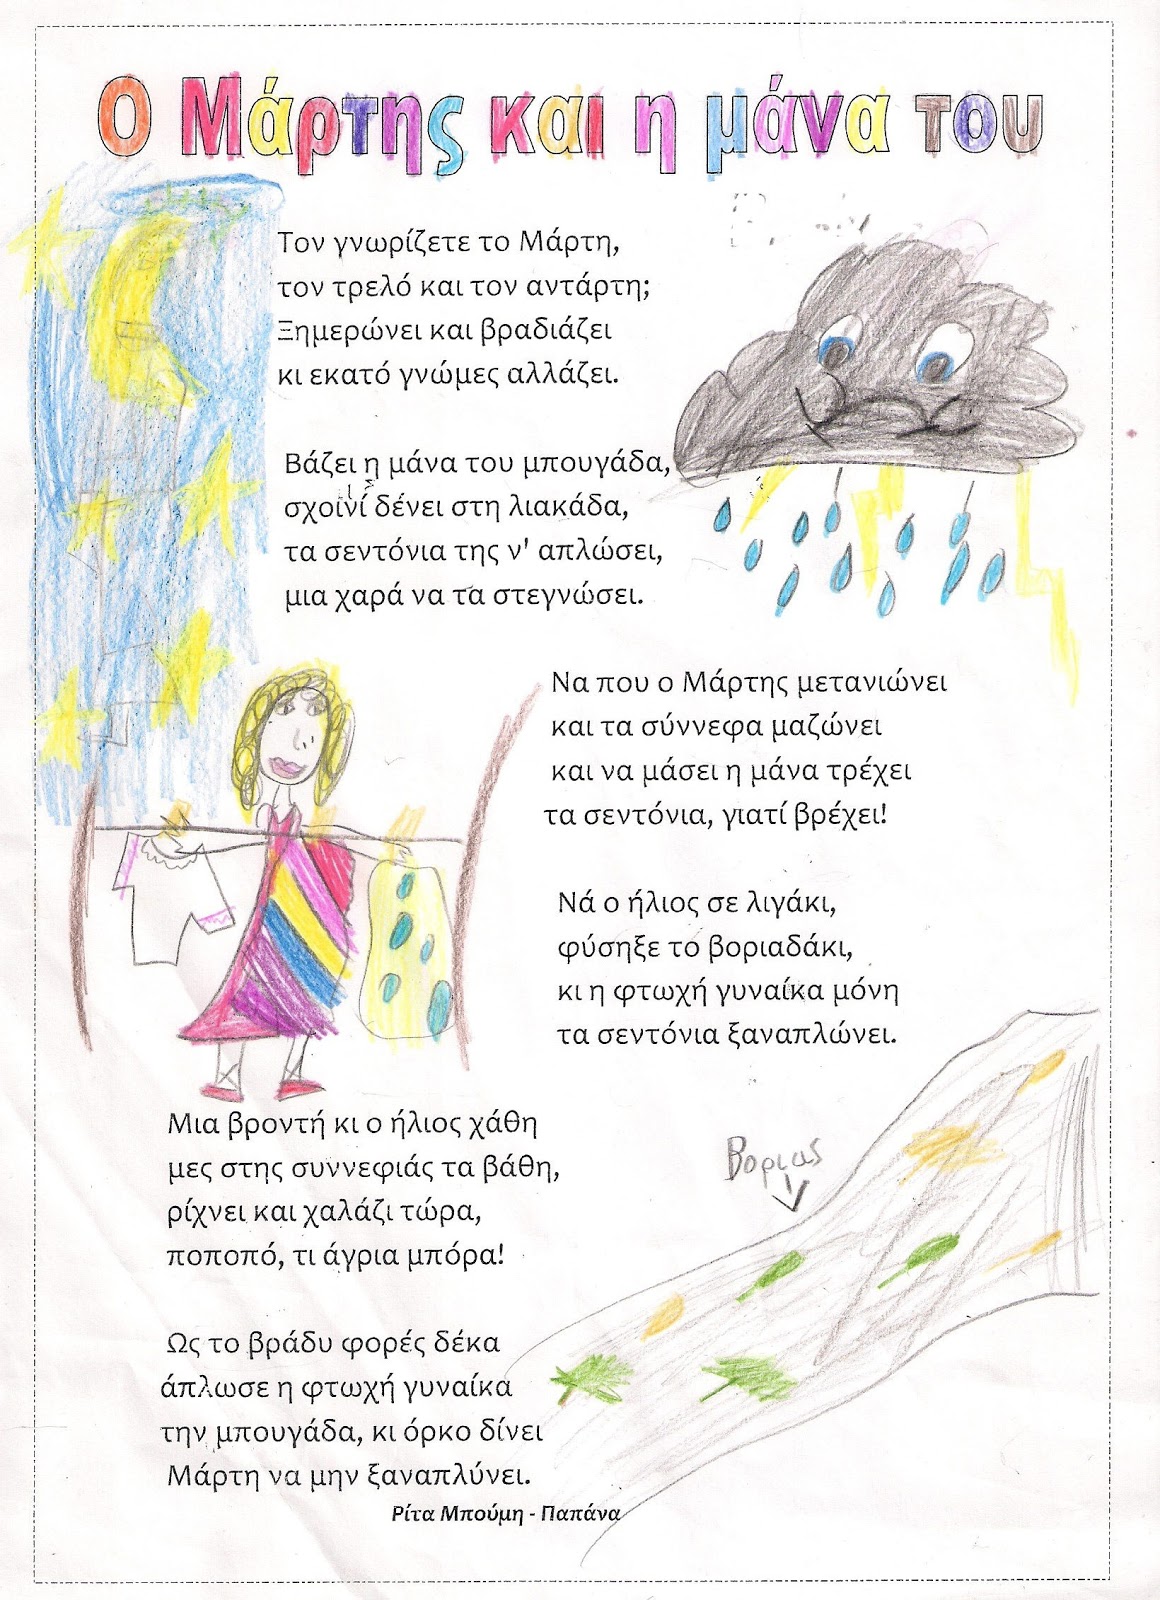 Ο Μάρτης και η μάνα του
Τον γνωρίζετε το Μάρτη,
τον τρελό και τον αντάρτη;
Ξημερώνει και βραδιάζει
κι εκατό γνώμες αλλάζει.
Βάζει η μάνα του μπουγάδα,
σχοινί δένει στη λιακάδα,
τα σεντόνια της ν' απλώσει,
μια χαρά να τα στεγνώσει.
Να που ο Μάρτης μετανιώνει
και τα σύννεφα μαζώνει
και να μάσει η μάνα τρέχει
τα σεντόνια, γιατί βρέχει!
Νά ο ήλιος σε λιγάκι,
φύσηξε το βοριαδάκι,
κι η φτωχή γυναίκα μόνη
τα σεντόνια ξαναπλώνει.
Μια βροντή κι ο ήλιος χάθη
μες στης συννεφιάς τα βάθη,
ρίχνει και χαλάζι τώρα,
ποποπό, τι άγρια μπόρα!
Βοριας
Ως το βράδυ φορές δέκα
άπλωσε η φτωχή γυναίκα
την μπουγάδα, κι όρκο δίνει
Μάρτη να μην ξαναπλύνει.
Ρίτα Μπούμη - Παπάνα